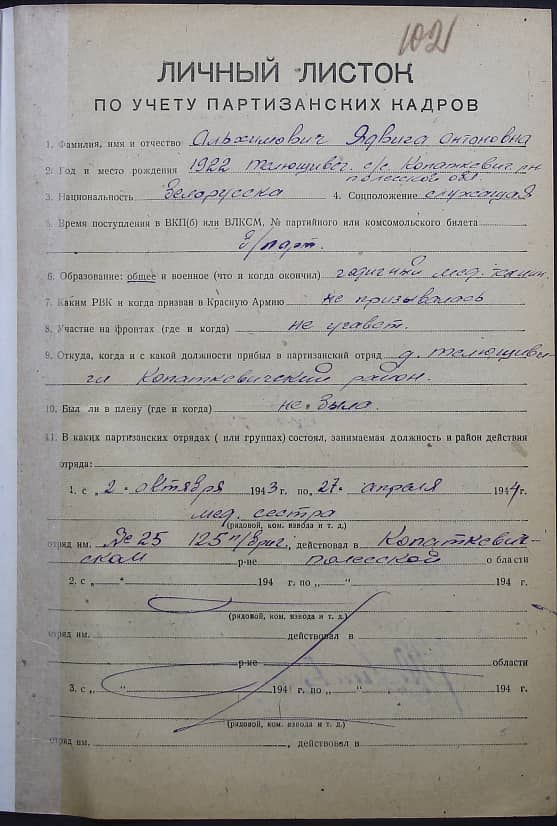 102
ЛИЧНЫЙ ЛИСТОК
ПО УЧЕТУ ПАРТИЗАНСКИХ КАДРОВ
1. Фамилия, имя и отчество Альхимович Ядвига Антоновна
2. Год и место рождения 1922 с/с Копаткевич. рн
полесской обл.
3. Национальность белорусска 4. Соцположение служащая
5. Время поступления в ВКП(б) или ВЛКСМ, № партийного или комсомольского билета
б/парт.
6. Образование: общее и военное (что и когда окончил) мед.
7. Каким РВК и когда призван в Красную Армию не призывалась
8. Участие на фронтах (где и когда) не участ.
9. Откуда, когда и с какой должности прибыл в партизанский отряд д.
Копаткевичский район.
10. Был ли в плену (где и когда) не была.
11. В каких партизанских отрядах ( или группах) состоял, занимаемая должность и район действия
отряда:
1. с „2“ октября 1943 г. по „27“ апреля 1944 г.
мед. сестра
(рядовой, ком. взвода и т. д.)
отряд им. № 25 125 п/бриг., действовал в Копаткевич-
ском р-не полесской области
2. с „ “ 194 г. по „ “ 194 г.
(рядовой, ком. взвода и т. д.)
отряд им. действовал в
р-не области
3. с „ “ 194 г. по „ “ 194 г.
(рядовой, ком. взвода и т. д.)
отряд им. , действовал в